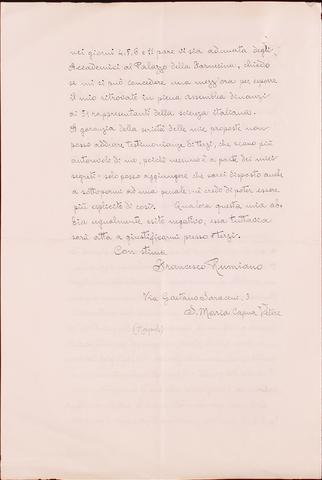 nei giorni 4.5.6 e 11 pare vi sia adunata degli
Accademici al Palazzo della Farnesina, chiedo
se mi si può concedere una mezz'ora per esporre
il mio ritrovato in piena assemblea dinanzi
ai rappresentanti della scienza italiana.
A garanzia della serietà delle mie proposte non
posso addurre testimonianze di terzi, che siano più
autorevoli di me, poichè nessuno è a parte dei miei
segreti: solo posso aggiungere che sarei disposto anche
a sottopormi ad una penale: nè credo di poter essere
più esplicito di così. Qualora questa mia ab-
bia egualmente esito negativo, essa tuttavia
sarà atta a giustificarmi presso terzi.
Con stima
Francesco Rumiano
Via Gaetano Saraceni, 3
S. Maria Capua Vetere
(Napoli)